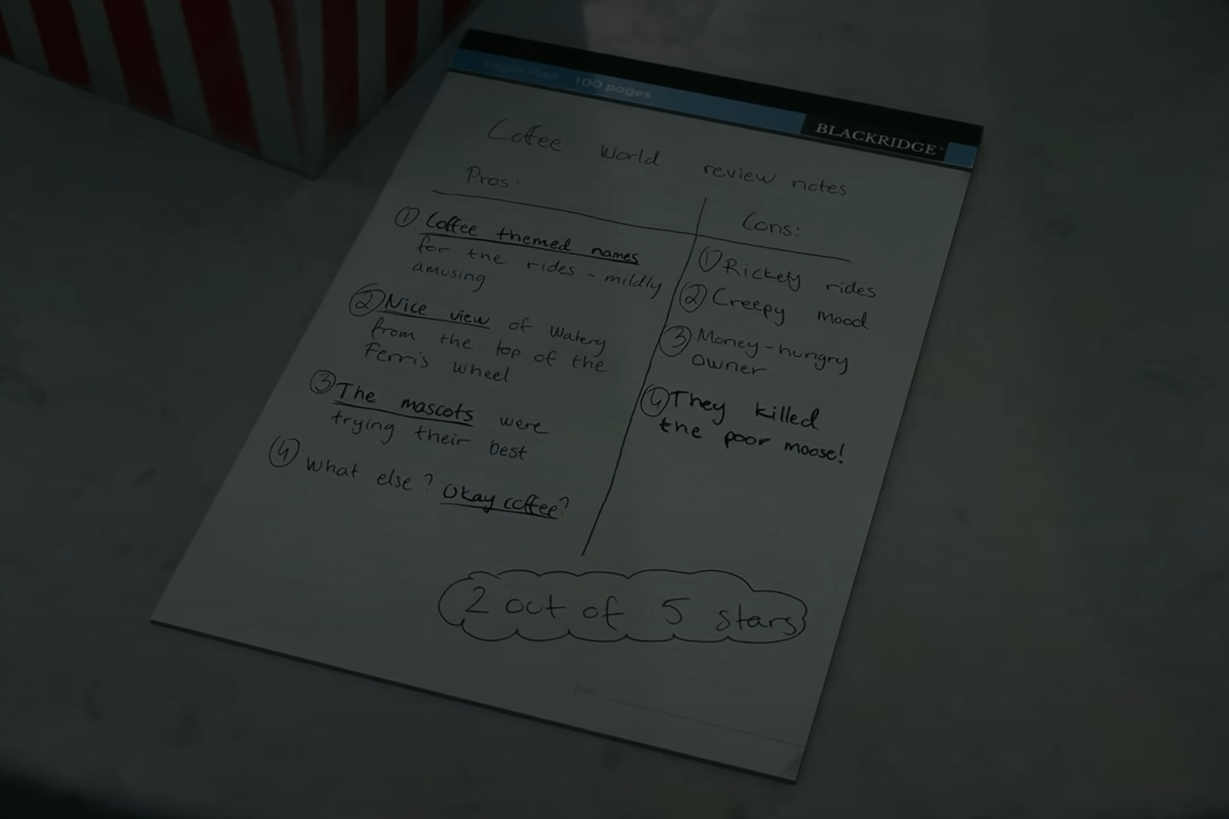 Legal Pad 100 pages
BLACKRIDGE
Coffee World review notes
Pros:
① Coffee themed names
for the rides - mildly
amusing
② Nice view of Watery
from the top of the
Ferris wheel
③ The mascots were
trying their best
④ What else? Okay coffee?
Cons:
① Rickety rides
② Creepy mood
③ Money-hungry
owner
④ They killed
the poor moose!
2 out of 5 stars